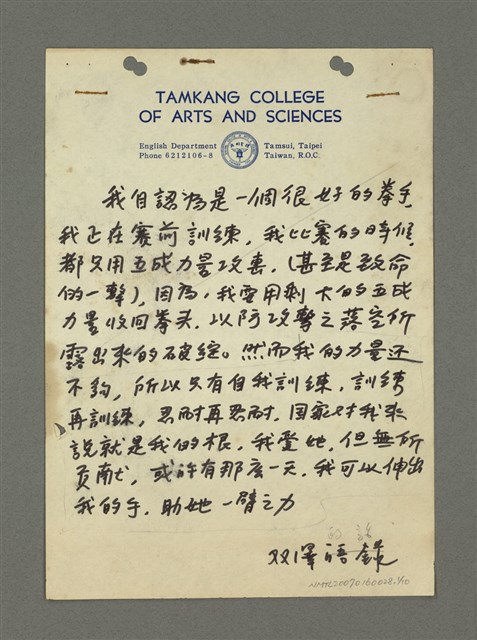 TAMKANG COLLEGE
OF ARTS AND SCIENCES
English Department
Phone 6212106-8
Tamsui, Taipei
Taiwan, R.O.C.
我自認為是一個很好的拳手,
我正在賽前訓練, 我比賽的時候,
都只用五成力量攻擊, (甚至是致命
的一擊), 因為, 我要用剩下的五成
力量收回拳头, 以防攻擊之落空所
露出來的破綻。然而我的力量还
不夠, 所以只有自我訓練, 訓練
再訓練, 忍耐再忍耐, 国家对我來
說就是我的根, 我愛她, 但無所
貢献, 或許有那么一天, 我可以伸出
我的手, 助她一臂之力
双澤語錄
NMTL20070160028, 1/10